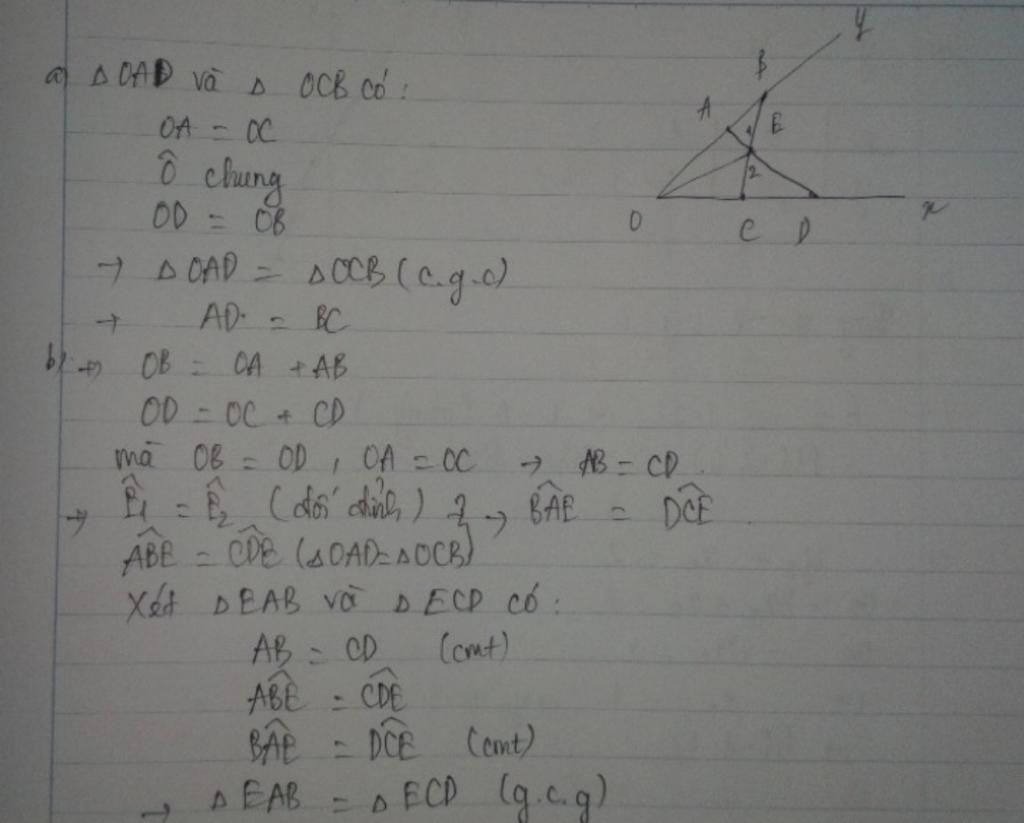 a) △OAD và △ OCB có:
OA = OC
Ô chung
OD = OB
→ △OAD = △OCB (c.g.c)
→ AD = BC
b) → OB = OA + AB
OD = OC + CD
mà OB = OD, OA = OC → AB = CD.
→ Ê1 = Ê2 (đối đỉnh) } → BÂE = DĈE
AB̂E = CD̂E (△OAD=△OCB)
Xét △EAB và △ECD có:
AB = CD (cmt)
AB̂E = CD̂E
BÂE = DĈE (cmt)
→ △EAB = △ECD (g.c.g)
y
B
A
1
E
2
O
C
D
x